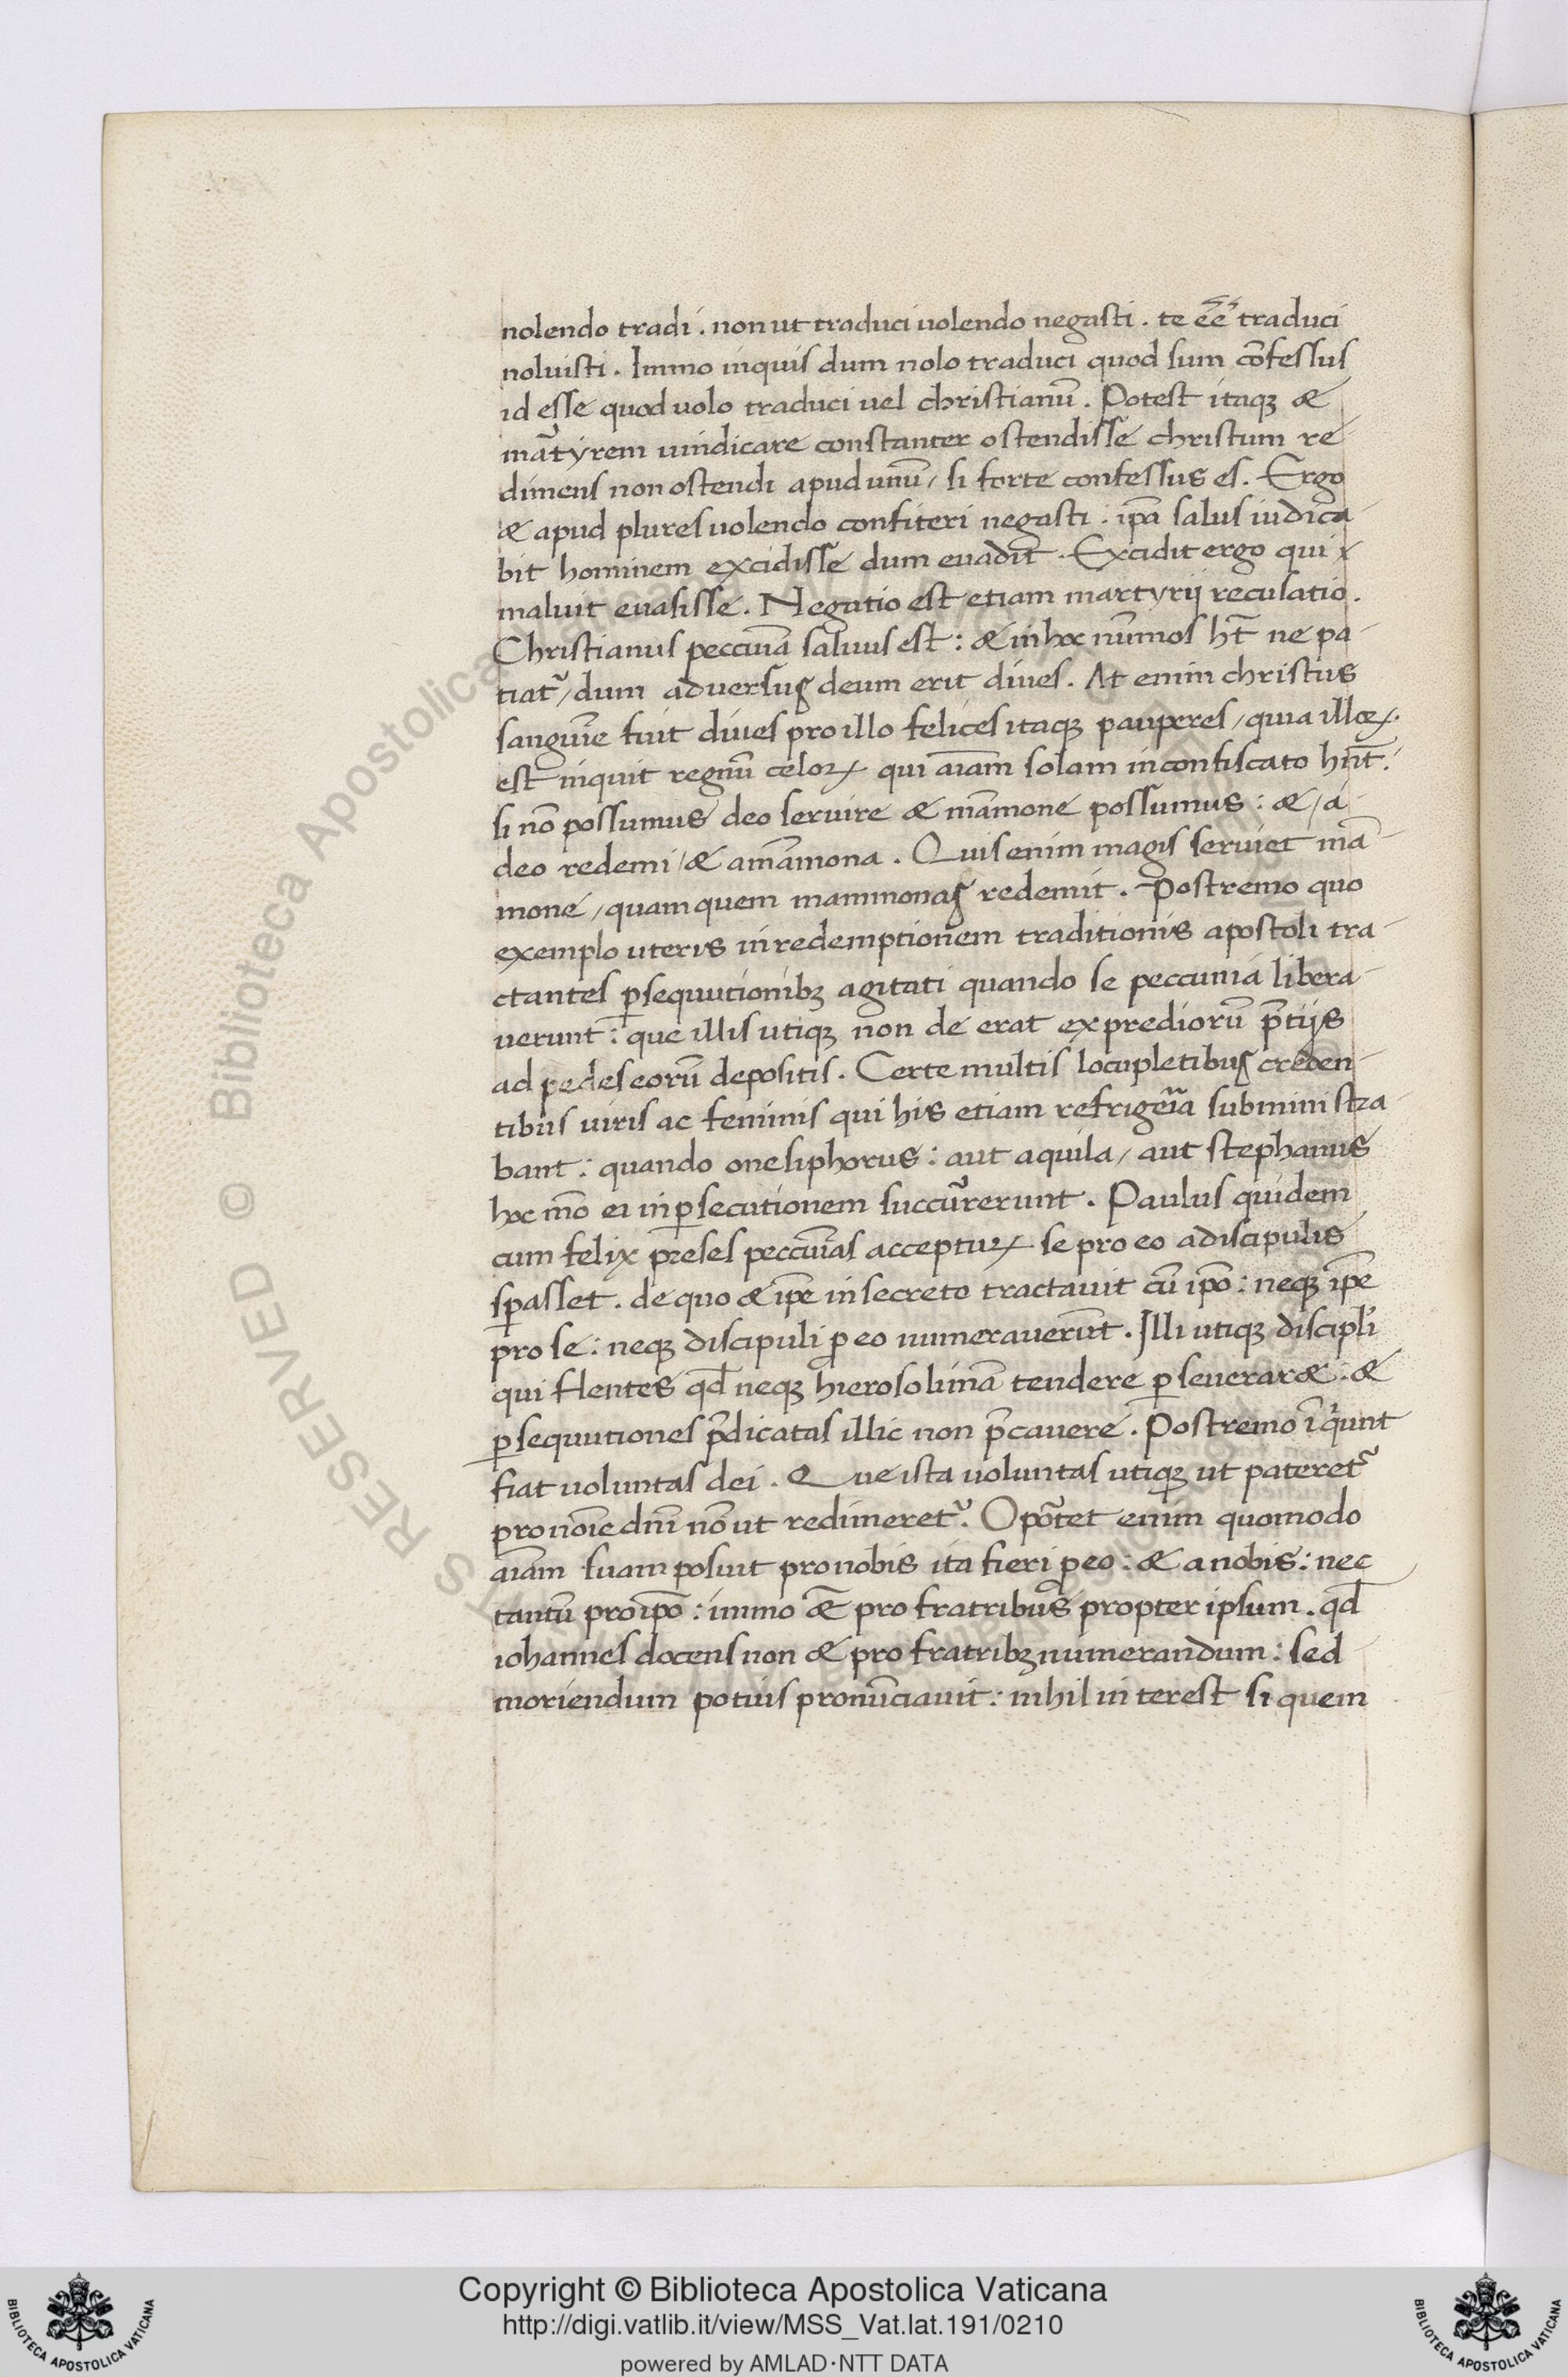 nolendo tradi. non ut traduci uolendo negasti. te ee̅ traduci
noluisti. Immo inquis dum nolo traduci quod sum co̅fessus
id esse quod uolo traduci uel christianu̅. Potest itaqꝫ &
ma̅tyrem uindicare constanter ostendisse christum re
dimens non ostendi apud unu̅/ si forte confessus es. Ergo
& apud plures uolendo confiteri negasti. ip̅a salus iudica-
bit hominem excidisse dum euadit. Excidit ergo qui
maluit euasisse. Negatio est etiam martyrij recusatio.
Christianus peccu̅ia saluus est: & in hoc nu̅mos ht̅ ne pa-
tiat᷑/ dum aduersus deum erit diues. At enim christus
sangui̅e fuit diues pro illo felices itaqꝫ pauperes/ quia illoꝝ.
est inquit regnu̅ celoꝝ qui ai̅am solam in confiscato hn̅t.
si no̅ possumus deo seruire & ma̅mone possumus: &/ a
deo redemi/ & a ma̅mona. Quis enim magis seruiet ma̅
mone/ quam quem mammonas redemit. Postremo quo
exemplo uteris in redemptionem traditionis apostoli tra-
ctantes ꝑsequutionibꝫ agitati quando se peccunia libera-
uerunt: que illis utiqꝫ non de erat ex predioru̅ p̅tijs
ad pedes eoru̅ depositis. Certe multis locupletibus creden-
tibus uiris ac feminis qui his etiam refrige̅ia subministra-
bant: quando onesiphorus: aut aquila/ aut stephanus
hoc mo̅ ei in ꝑsecutionem succu̅rerunt. Paulus quidem
cum felix preses peccu̅ias accepturꝝ se pro eo a discipulis
sꝑasset. de quo & ip̅e in secreto tractauit cu̅ ip̅o: neqꝫ ip̅e
pro se: neqꝫ discipuli ꝓ eo numerauerunt. Illi utiqꝫ discipl̓i
qui flentes qd̅ neqꝫ hierosolima̅ tendere ꝑseuerar&. &
ꝑsequutiones p̅dicatas illic non p̅cauere. Postremo i̅q̓unt
fiat uoluntas dei. Que ista uoluntas utiqꝫ ut pateret᷑
pro no̅ie dn̅i no̅ ut redimeret᷑. Opo̅tet enim quomodo
ai̅am suam posuit pro nobis ita fieri ꝓ eo: & a nobis: nec
tantu̅ pro ip̅o: immo &̅ pro fratribus propter ipsum. qd̅
iohannes docens non & pro fratribꝫ numerandum: sed
moriendum potius pronu̅ciauit: nihil interest si quem
Copyright © Biblioteca Apostolica Vaticana
http://digi.vatlib.it/view/MSS_Vat.lat.191/0210
powered by AMLAD·NTT DATA